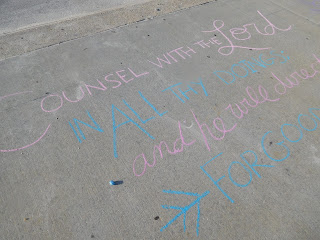 OUNSEL WITH THE Lord
IN All thy doings
and he will direct
FOR